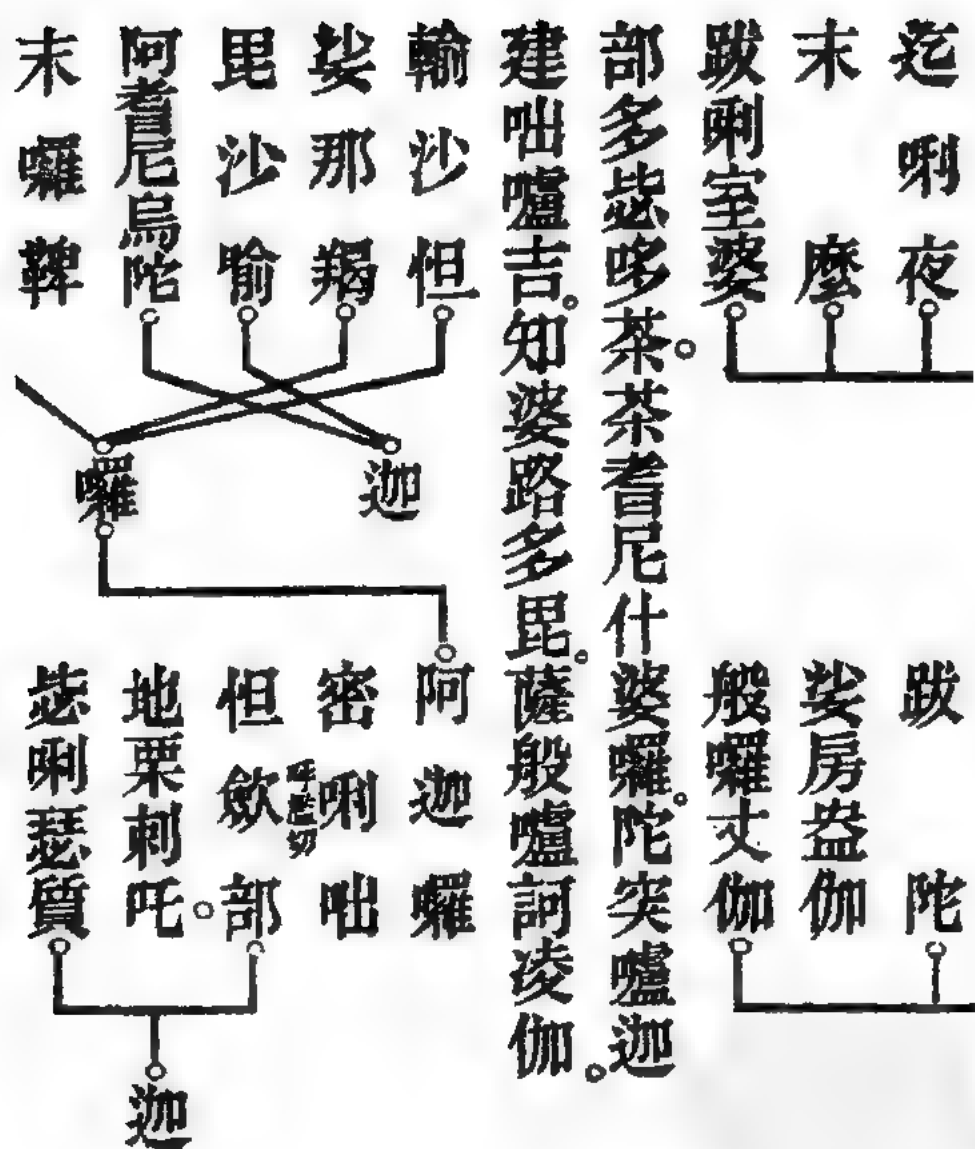 迄唎夜
末麼
跋唎室婆
跋陀
娑房盎伽
般囉丈伽
部多毖哆茶。茶耆尼什婆囉。陀突嚧迦
建咄嚧吉。知婆路多毘。薩般嚧訶凌伽。
輸沙怛
娑那羯
毘沙喻
阿耆尼烏陀
末囉鞞
迦
囉
阿迦囉
密唎咄
怛歛部
地栗剌吒。
毖唎瑟質
迦